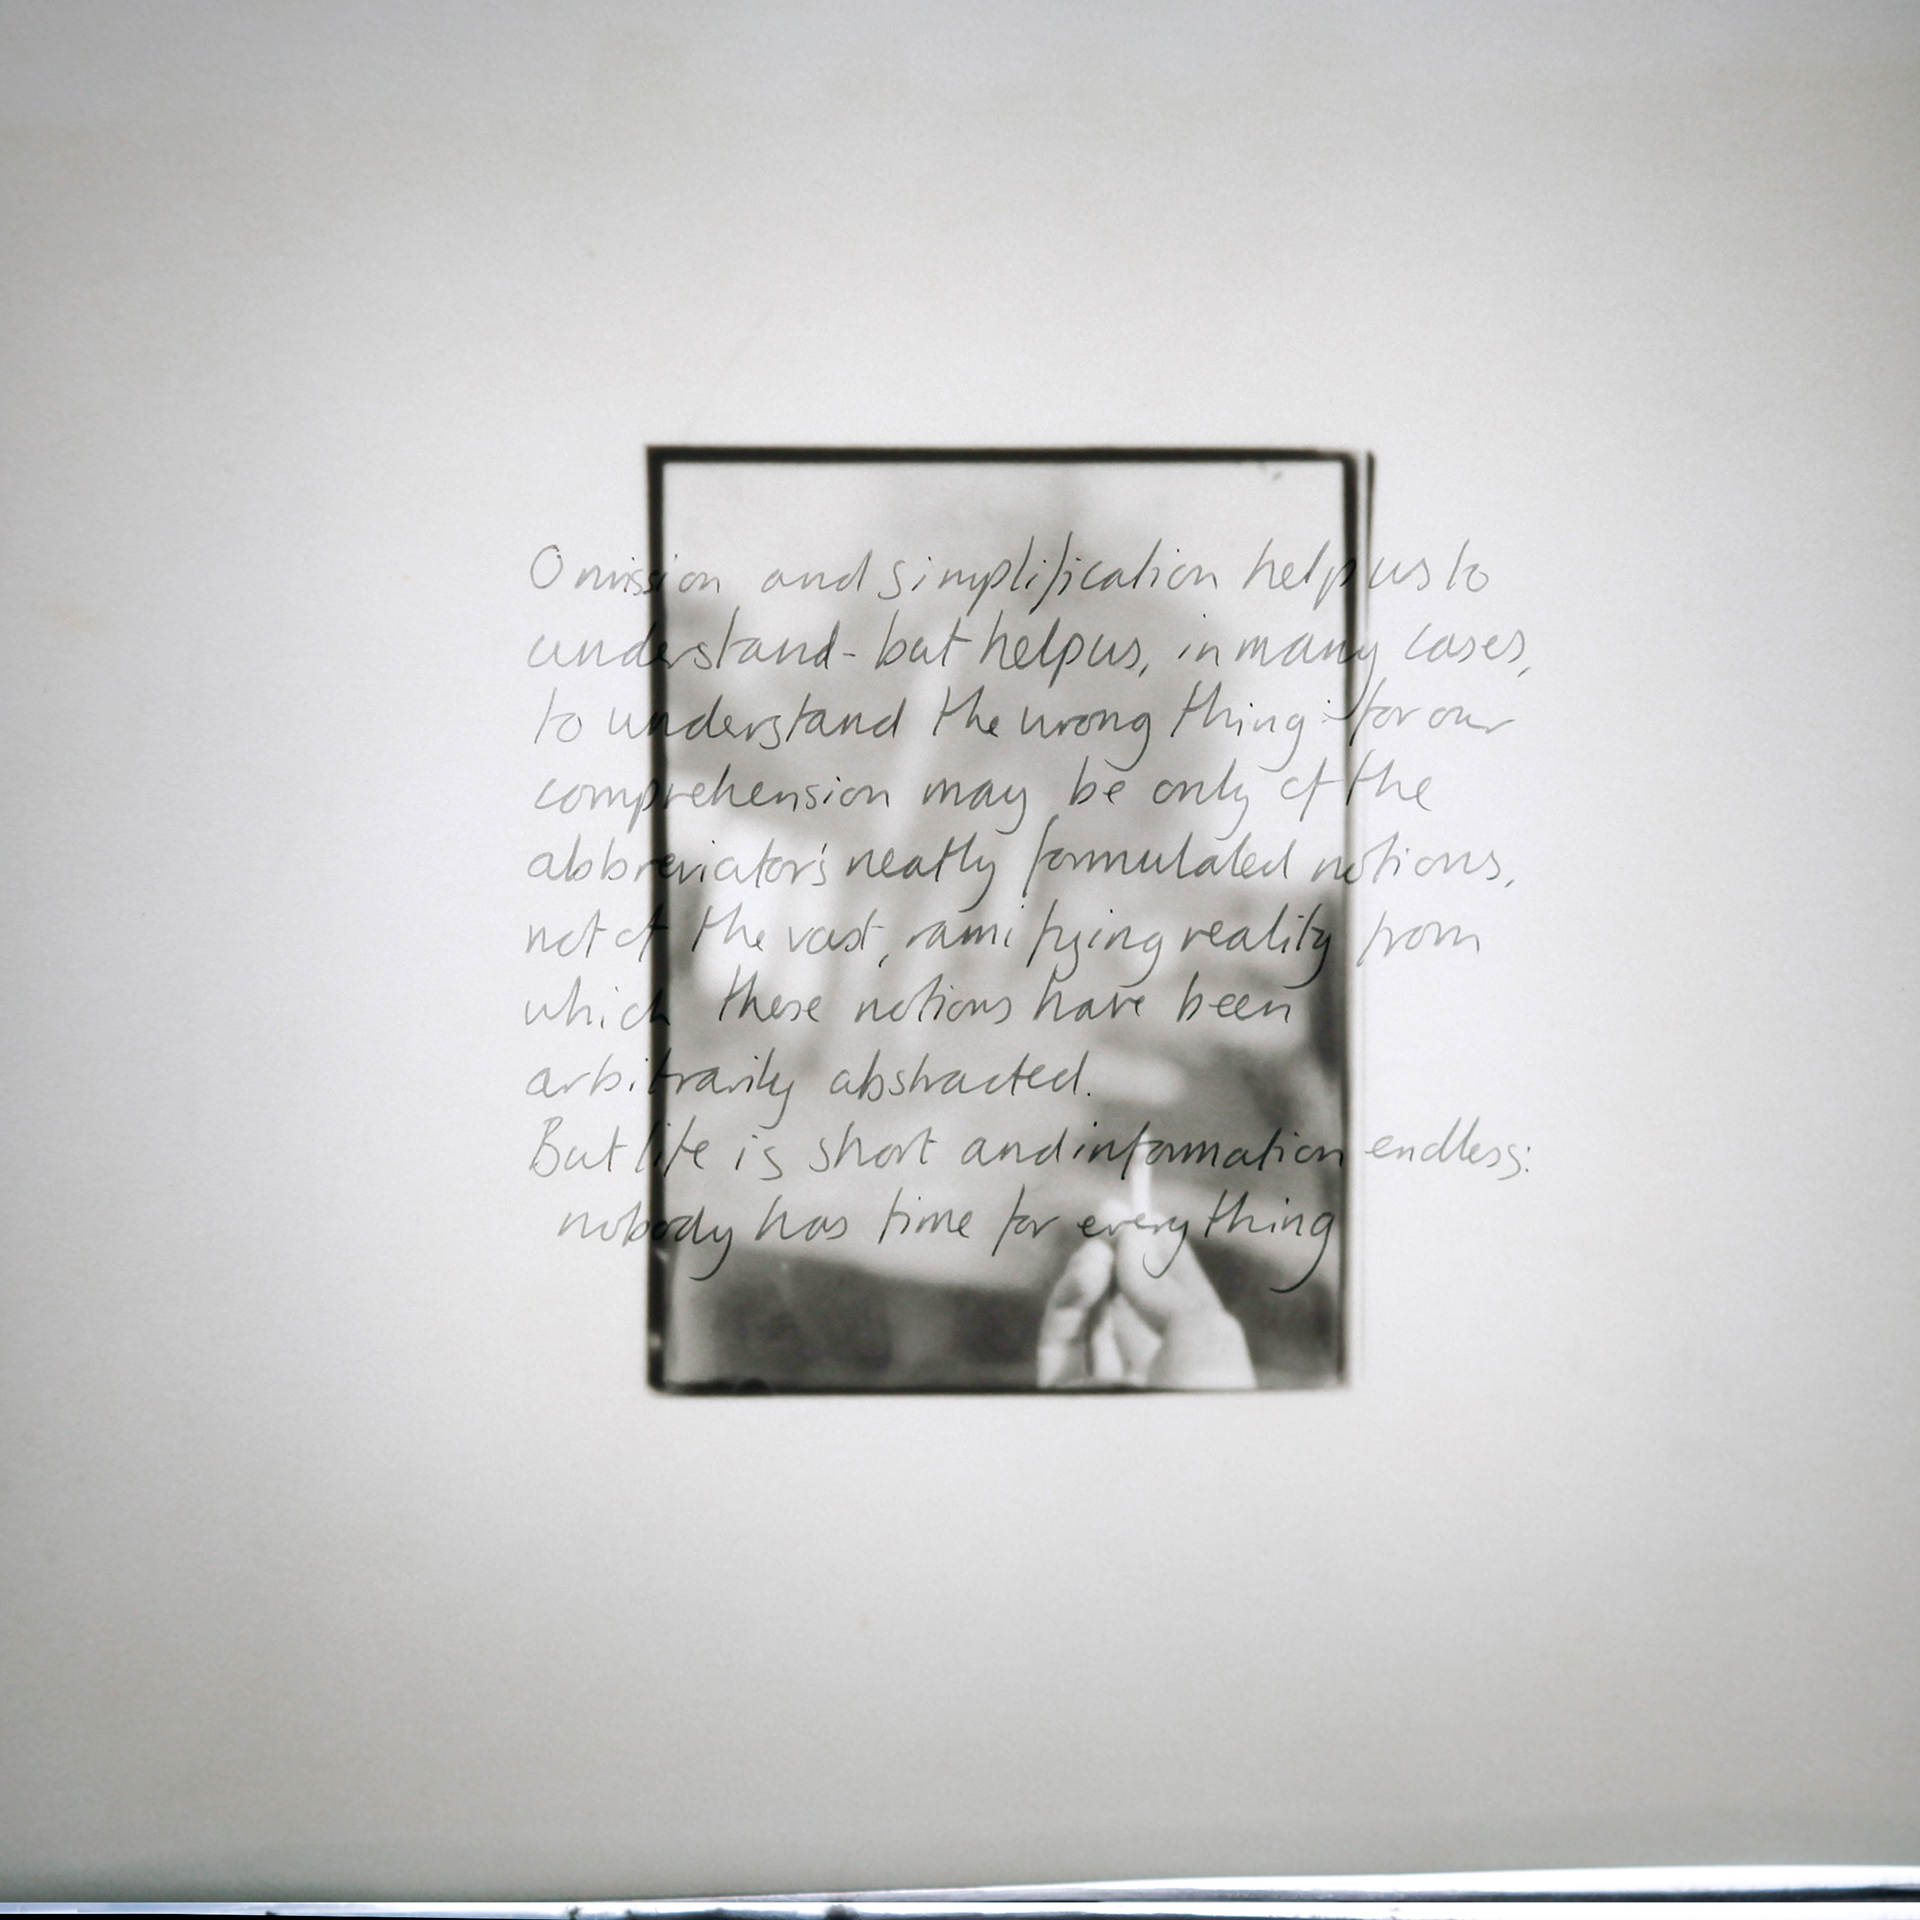 Omission and simplification help us to
understand - but help us, in many cases,
to understand the wrong thing: for our
comprehension may be only of the
abbreviator's neatly formulated notions,
not of the vast, ramifying reality from
which these notions have been
arbitrarily abstracted.
But life is short and information endless:
nobody has time for everything